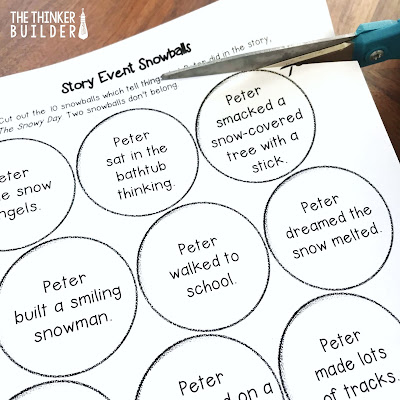 THE THINKER
BUILDER
Story Event Snowballs
Cut out the 10 snowballs which tell things Peter did in the story,
The Snowy Day. Two snowballs don't belong.
Peter
smacked a
snow-covered
tree with a
stick.
Peter
sat in the
bathtub
thinking.
snow
Peter
dreamed the
snow melted.
Peter
walked to
school.
Peter
built a smiling
snowman.
Peter
made lots
of tracks.
on a